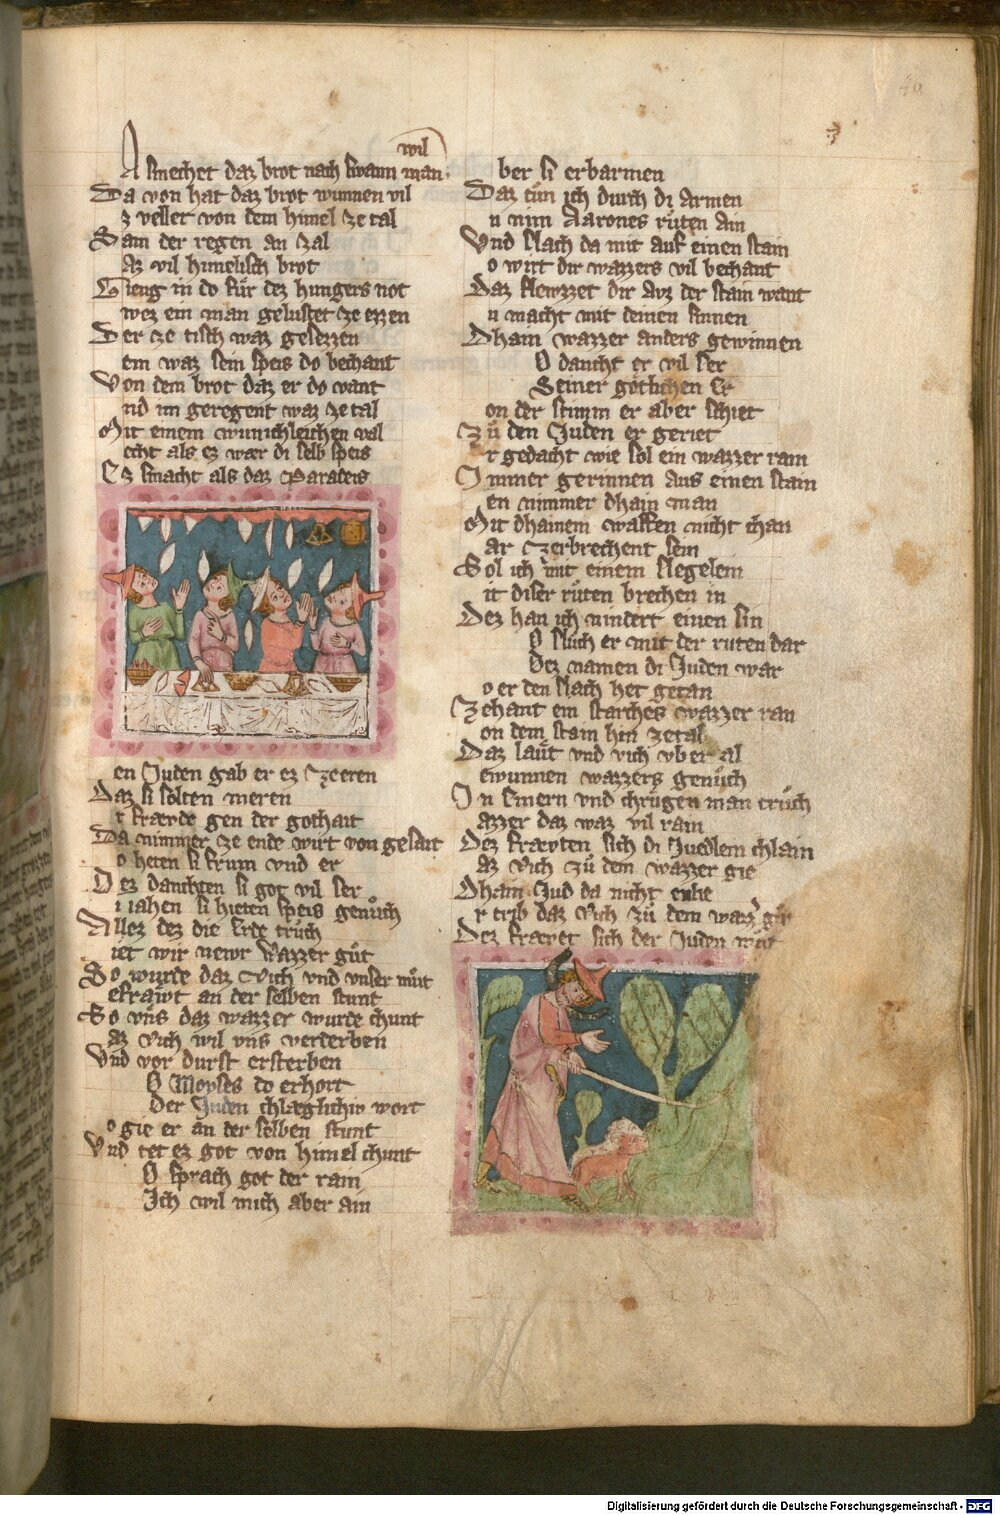 wil
A smechet daz brot nach swann man
Da von hat daz brot wunnen vil
z vellet von dem himel ze tal
Sam der regen an zal
az vil himelisch brot
Gieng in do für dez hungers not
wez ein man gelustet ze ezzen
Der ze tisch waz gesezzen
em waz sein speis do bechant
Von dem brot daz er do vant
nd im geregent waz ze tal
Mit einem wunichleichen val
echt als ez wær di selb speis
Ez smacht als daz Paradeis
en Juden gab er ez ze eren
Daz si solten meren
r fræude gen der gothait
Da nimmer ze ende wirt von gesait
o heten si frum vnd er
Dez dauchten si got vil ser
i iahen si hieten speis genůch
Allez dez die Erde trůch
iet wir newr Wazzer gůt
So wurde daz Vich vnd vnser můt
efræwt an der selben stunt
So vns daz wazzer wurde chunt
az vich wil vns verderben
Vnd vor durst ersterben
O Moyses do erhort
Der Juden chlæglichiv wort
o gie er an der selben stunt
Vnd tet ez got von himel chunt
O sprach got der rain
Ich wil mich aber ain
ber si erbarmen
Daz tůn ich durch di armen
u nim Aarones růten ain
Vnd slach da mit auf einen stain
o wirt dir wazzers vil bechant
Daz flewzzet dir auz der stain want
u macht mit deinen sinnen
Dhain wazzer anders gewinnen
O daucht er vil ser
Seiner götlichen Er
on der stimm er aber schiet
Zů den Juden er geriet
r gedacht wie sol ein wazzer rain
Immer gerinnen aus einen stain
en nimmer dhain man
Mit dhainem waffen nicht chan
ar Zerbrechent sein
Sol ich mit einem slegelein
it diser růten brechen in
Dez han ich nindert einen sin
O slůch er mit der ruten dar
Dez namen di Juden war
o er den slach het getan
Zehant ein starches wazzer ran
on dem stain hin zetal
Daz laut vnd vich vber al
ewunnen wazzers genůch
In eimern vnd chrůgen man trůch
azzer daz waz vil rain
Dez fræuten sich di Juedlein chlain
az vich zů dem wazzer gie
Dhain Jud da nicht enlie
r trib daz vich zů dem wazzer gir
Dez fræuet sich der Juden můt
Digitalisierung gefördert durch die Deutsche Forschungsgemeinschaft - DFG